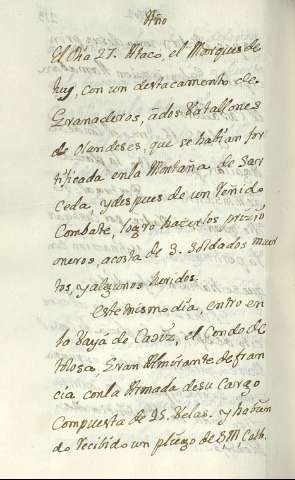 Año
El Dia 27. Ataco, el Marques de
huy, con un destacamento de
Granaderos, à dos Batallones
de olandeses, que se habian for
tificado en la Montaña, de Sar
ceda, y despues de un Reñido
Combate, logro hacerlos prizio
oneros, acosta de 3. Soldados muer
tos, y algunos heridos.
Este mismo dia, entro en
la Baya de Cadiz, el Conde de
Gran Almirante de fran
cia con la Armada de su Cargo
Compuesta de 25 Velas. y habien
do recibido un pliego de S.M Cath.